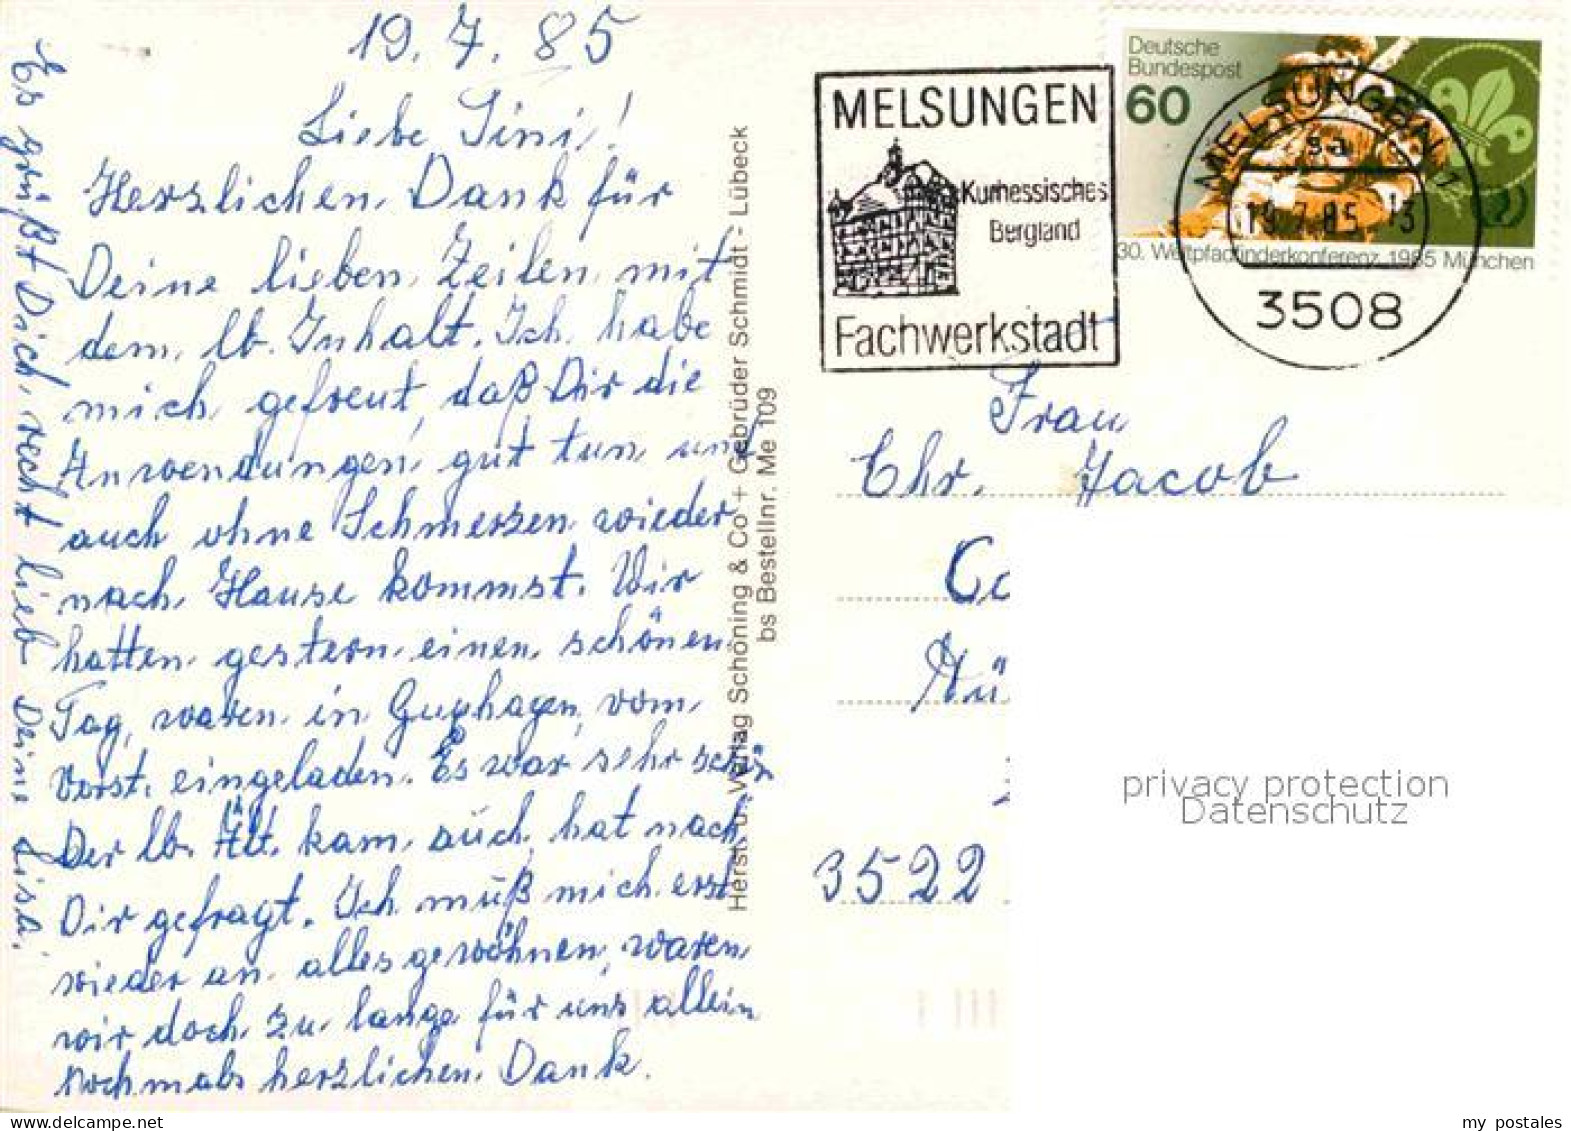 19.7.85
Liebe Tini!
Herzlichen Dank für
Deine lieben Zeilen mit
dem lb. Inhalt. Ich habe
mich gefreut, daß Dir die
Anwendungen gut tun und
auch ohne Schmerzen wieder
nach Hause kommst. Wir
hatten gestern einen schönen
Tag, waren in Guxhagen vom
Vorst. eingeladen. Es war sehr schön
Der lb. Ält. kam auch, hat nach
Dir gefragt. Ich muß mich erst
wieder an alles gewöhnen, waren
wir doch zu lange für uns allein
Nochmals herzlichen Dank.
Es grüßt Dich recht lieb Deine Lisa.
Herst. u. Verlag Schöning & Co + Gebrüder Schmidt - Lübeck
bs Bestellnr. Me 109
MELSUNGEN
Kurhessisches
Bergland
Fachwerkstadt
Deutsche
Bundespost
60
30. Weltpfadfinderkonferenz 1985 München
MELSUNGEN 1
sa
19.7.85-13
3508
Frau
Chr. Jacob
3522
privacy protection
Datenschutz
my postales